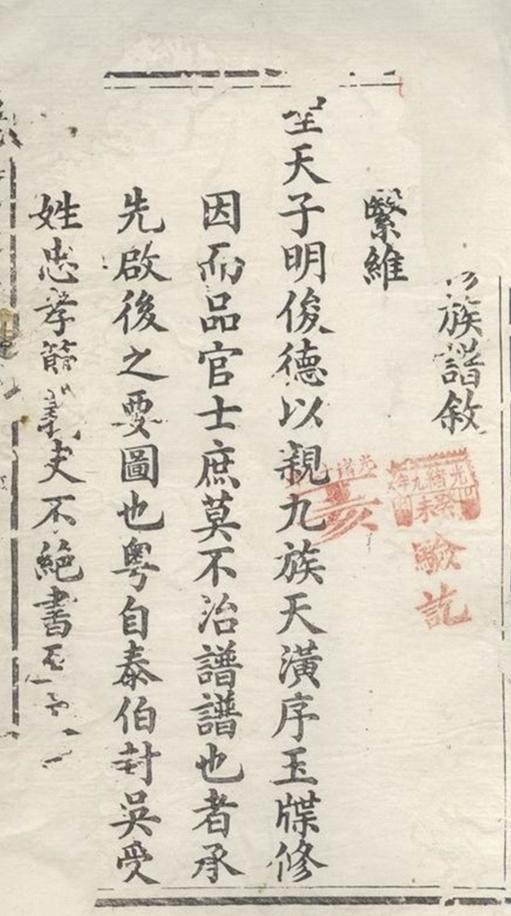 族譜敘
繄維
聖天子明俊德以親九族天潢序玉牒修
因而品官士庶莫不治譜譜也者承
先啟後之要圖也粵自泰伯封吳受
姓忠孝節義史不絕書
光緒九年
癸未
驗訖
亥